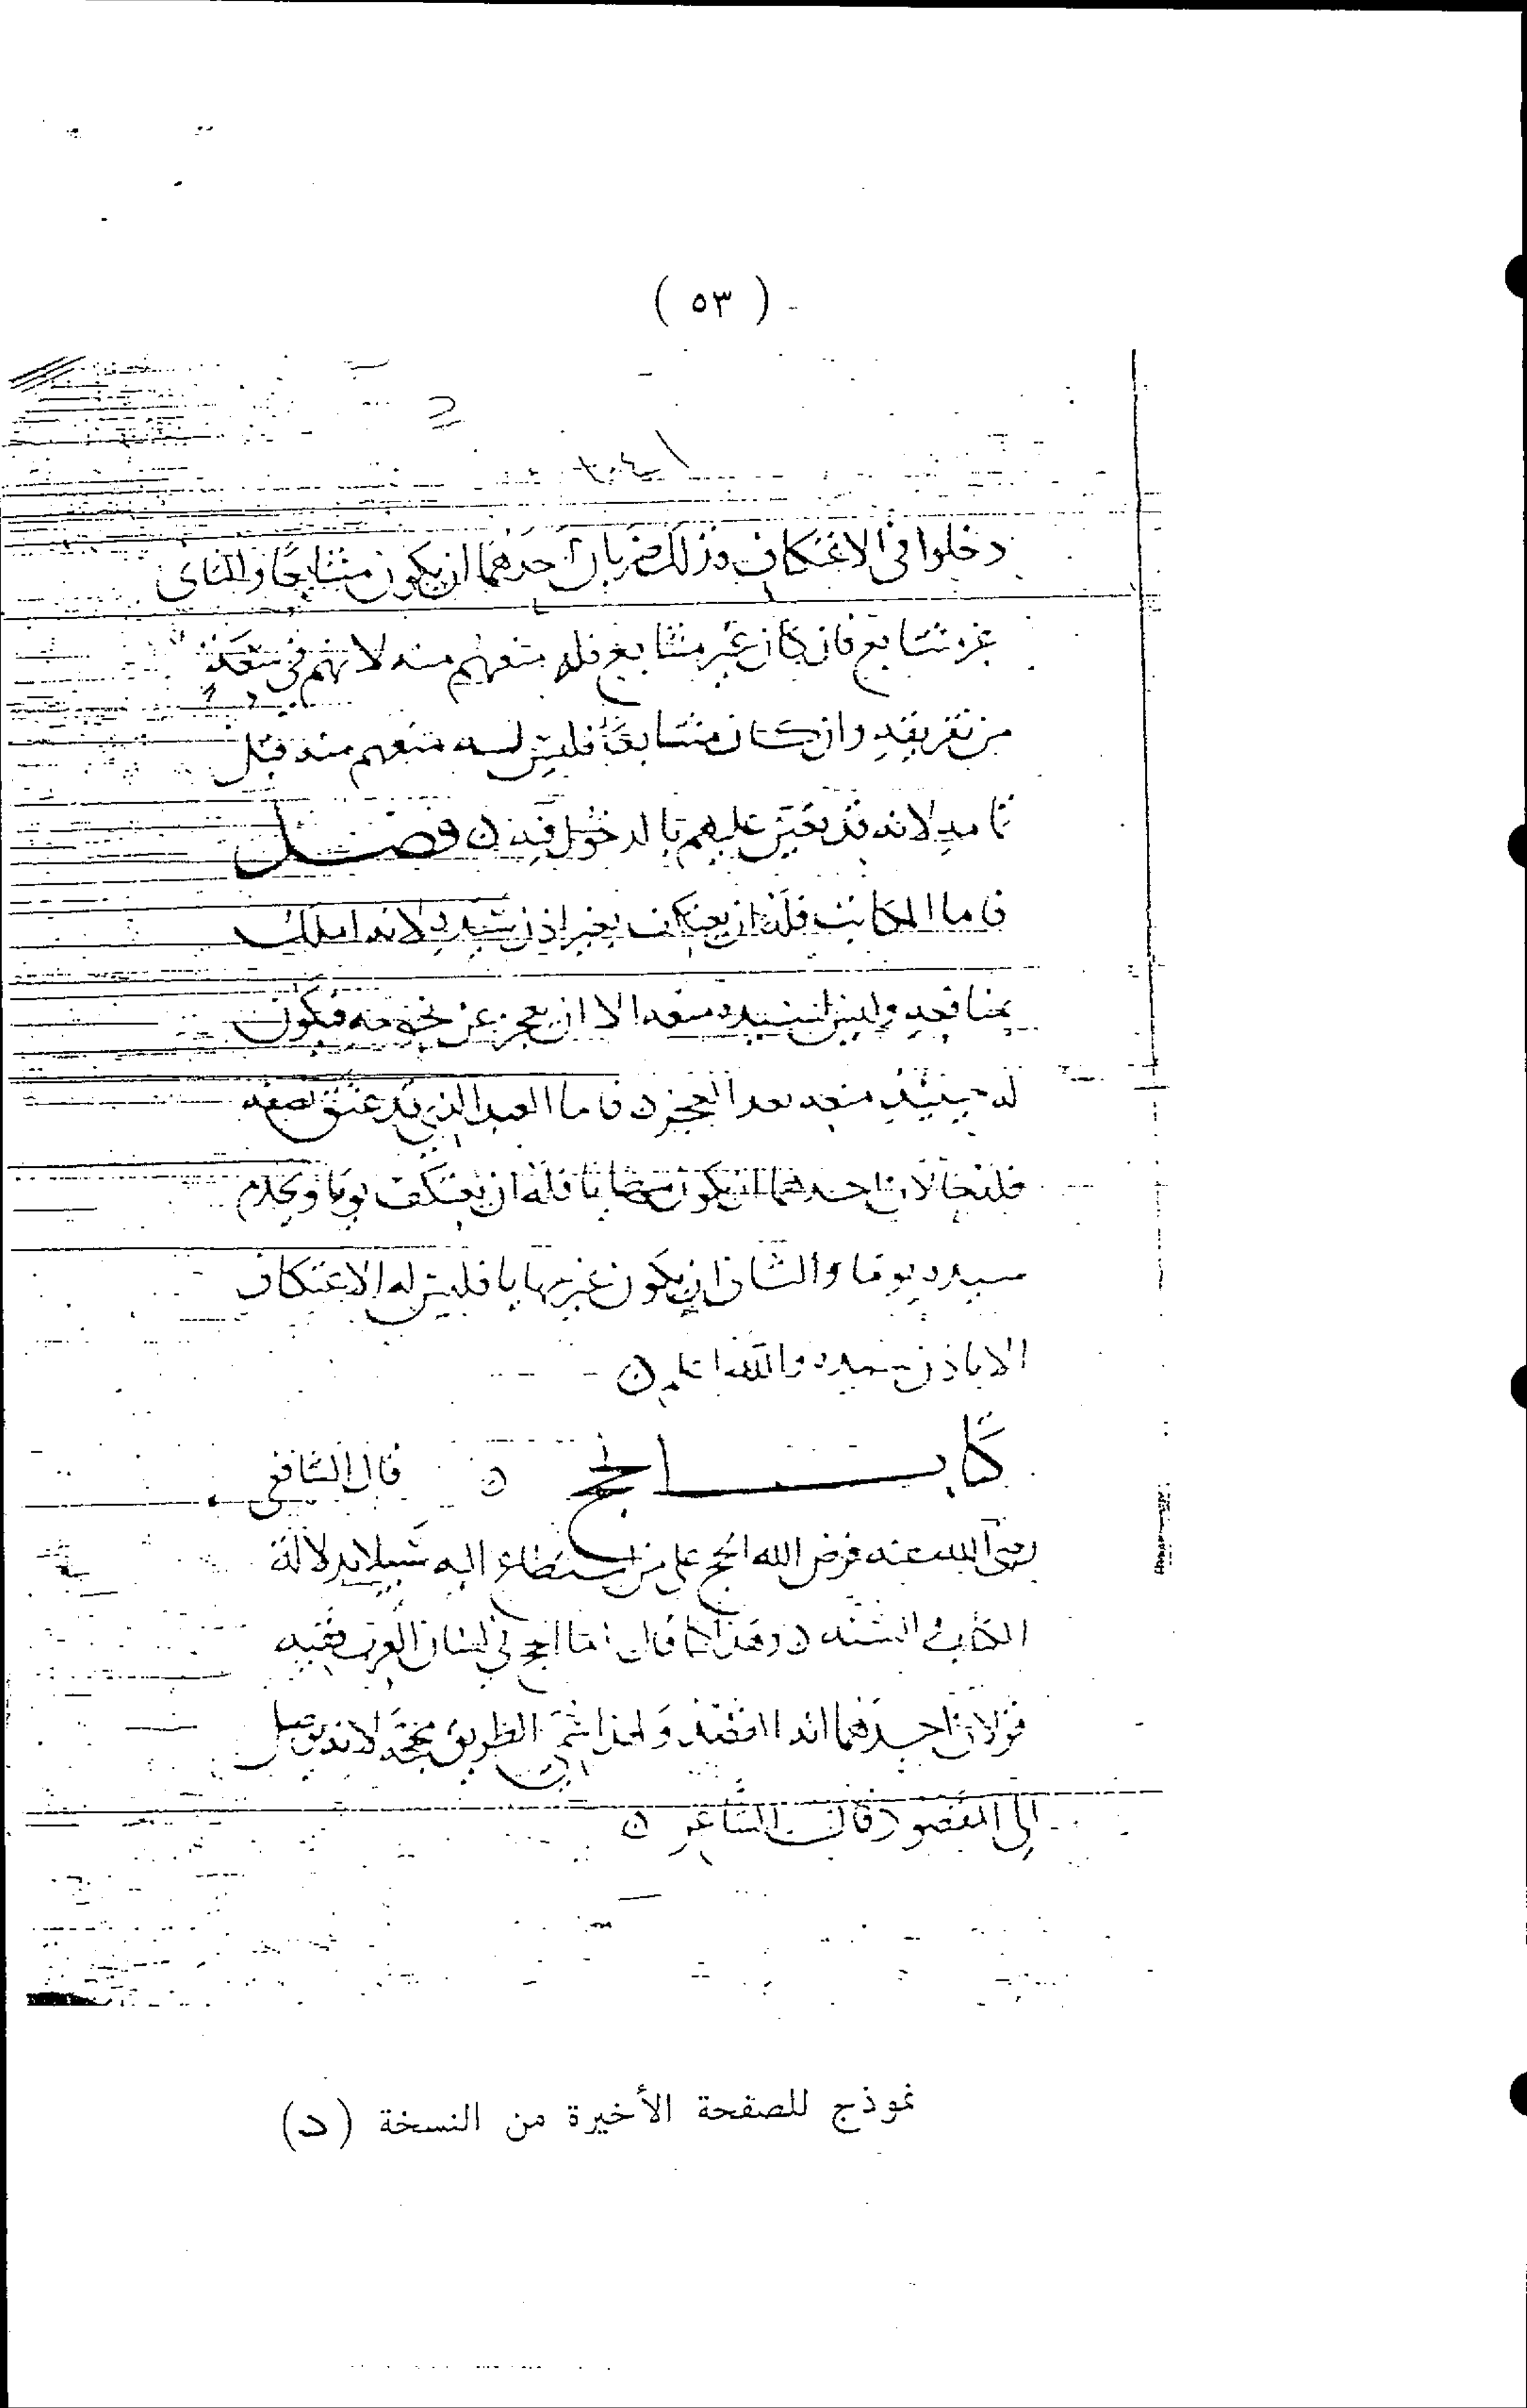 ( ٥٣ )
دخلوا في الاعتكاف وذلك ضربان احدهما ان يكون متتابعا والثاني
غير متتابع فان كان غير متتابع فله منعهم منه لانهم في سعة
من تفريقه وان كان متتابعا فليس له منعهم منه قبل
تمامه لانه قد تعين عليهم بالدخول فيه ن فصل
فاما المكاتب فله ان يعتكف بغير اذن سيده لانه املك
بمنافعه وليس لسيده منعه الا ان يعجز عن نجومه فيكون
له حينئذ منعه بعد العجز ن فاما العبد الذي قد عتق نصفه
فله حالان احدهما ان يكون مهايا فله ان يعتكف يوما ويخدم
سيده يوما والثاني ان يكون غير مهايا فليس له الاعتكاف
الا باذن سيده والله اعلم ن
كتاب الحج ن قال الشافعي
رضي الله عنه فرض الله الحج على من استطاع اليه سبيلا بدلالة
الكتاب والسنه ن وهذا كما قال اما الحج في لسان العرب ففيه
قولان احدهما انه القصد ولهذا سمي الطريق محجة لانه يوصل
الى المقصود قال الشاعر ن
نموذج للصفحة الأخيرة من النسخة (د)